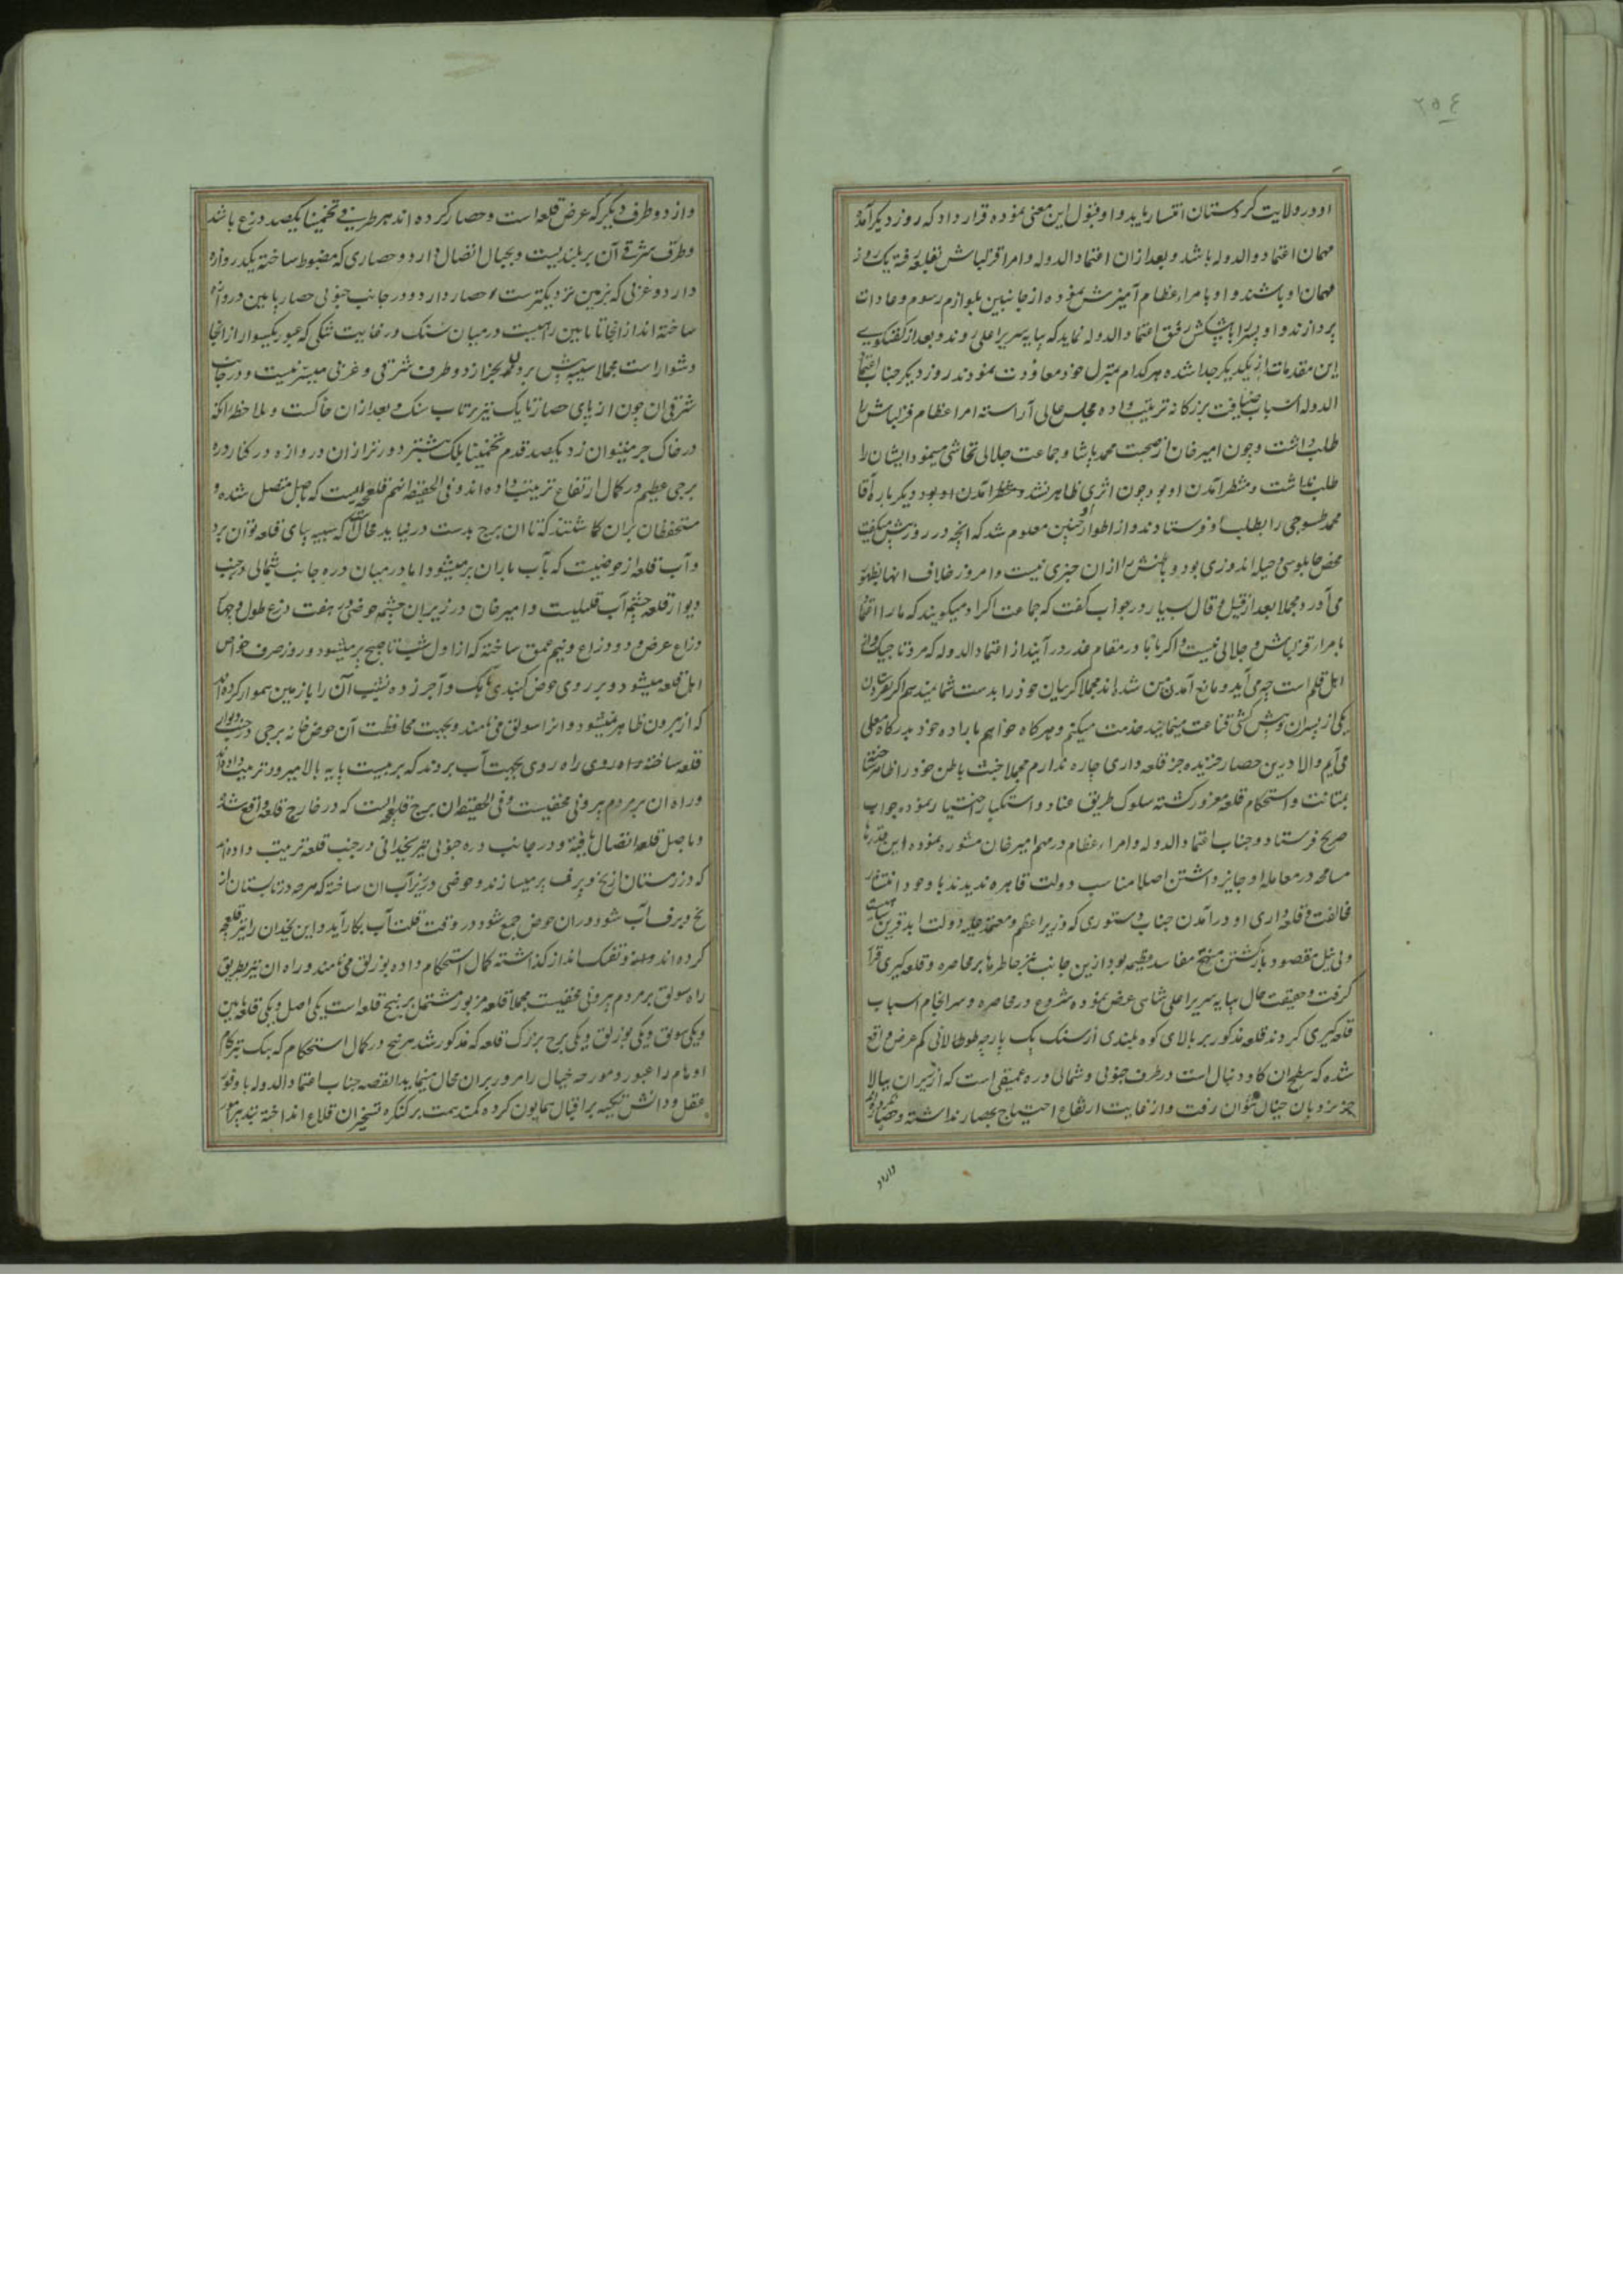 ٢٥٤
او در ولایت کردستان انتشار یابد و او قبول این معنی نموده قرار داد که روز دیکر آمده
مهمان اعتماد الدوله باشد و بعد از ان اعتماد الدوله و امرا قزلباش بقلعه رفته یک روز
مهمان او باشند و او با مراء عظام آمیزش نموده از جانبین بلوازم رسوم و عادات
پردازند و او پسر را با پیشکش رفیق اعتماد الدوله نماید که بپایه سریر اعلی روند و بعد از کفتکوی
این مقدمات از یکدیکر جدا شده هر کدام بمنزل خود معاودت نمودند روز دیکر جناب اعتماد
الدوله اسباب ضیافت بزرکانه ترتیب داده مجلس عالی آراسته امرا عظام قزلباش را
طلب داشت و چون امیر خان از صحبت محمد پاشا و جماعت جلالی تحاشی مینمود ایشان را
طلب نداشت و منتظر آمدن او بود چون اثری ظاهر نشد و منتظر آمدن او بود دیکر باره آقا
محمد طسوجی را بطلب او فرستادند و از اطوار او چنین معلوم شد که انچه در روز پیش میکفت
محض چابلوسی و حیله اندوزی بود و باطنش را از ان خبری نیست و امروز خلاف انها بظهور
می آورد و مجملا بعد از قیل و قال بسیار در جواب کفت که جماعت اکراد میکویند که ما را اعتماد
بامراء قزلباش و جلالی نیست و اکر با ما در مقام غدر در آیند از اعتماد الدوله که مرد تاجیک و از
اهل قلم است چه می آید و مانع آمدن من شده اند مجملا کریبان خود را بدست شما نمیدهم اکر بفرستادن
یکی از پسران و پیش کشی قناعت مینمائید خدمت میکنم و هر کاه خواهم باراده خود بدرکاه معلی
می آیم و الا درین حصار خزیده جز قلعه داری چاره ندارم مجملا خبث باطن خود را ظاهر ساخته
بمتانت و استحکام قلعه مغرور کشته سلوک طریق عناد و استکبار اختیار نموده جواب
صریح فرستاد و جناب اعتماد الدوله و امراء عظام در مهم امیر خان مشوره نموده این قدرها
مسامحه در معامله او جایز داشتن اصلا مناسب دولت قاهره ندیدند با وجود انتشار
مخالفت و قلعه داری او در آمدن جناب دستوری که وزیر اعظم و معتمد علیه دولت ابد قرین است
و بی نیل مقصود بازکشتن منتج مفاسد عظیمه بود ازین جانب نیز خاطرها بر محاصره و قلعه کیری قرار
کرفت و حقیقت حال بپایه سریر اعلی شاهی عرض نموده شروع در محاصره و سرانجام اسباب
قلعه کیری کردند قلعه مذکور بر بالای کوه بلندی از سنک یک پارچه طولانی کم عرض واقع
شده که سطح ان کاو دنبال است در طرف جنوبی و شمالی دره عمیقی است که از زیر ان ببالا
جز بنردبان خیال نتوان رفت و از غایت ارتفاع احتیاج بحصار نداشته
و از دو
و از دو طرف دیکر که عرض قلعه است و حصار کرده اند هر طرفی تخمینا یکصد درع باشد
و طرف شرقی آن بر بلندیست و بجبال اتصال دارد و حصاری که مضبوط ساخته یکدروازه
دارد و غربی که بزمین نزدیکترست حصار دارد و در جانب جنوبی حصار پایین دروازه
ساخته اند از انجا تا پایین راهیست در میان سنک در غایت تنکی که عبور یکسوار از انجا
دشوار است مجملا سیبه پیش بردن بجز از دو طرف شرقی و غربی میسر نیست و در جانب
شرقی ان چون از پای حصار تا یک تیر پرتاب سنک و بعد از ان خاکست و ملاحظه انکه
در خاک جر میتوان زد یکصد قدم تخمینا بلک بیشتر دورتر از ان دروازه در کنار دره
برجی عظیم در کمال ارتفاع ترتیب داده اند و فی الحقیقه انهم قلعچه ایست که باصل متصل شده و
مستحفظان بران کاشتند که تا ان برج بدست در نیاید محال است که سیبه بپای قلعه توان برد
و آب قلعه از حوضیست که بآب باران پر میشود اما در میان دره جانب شمالی در جنب
دیوار قلعه چشمه آب قلیلیست و امیر خان در زیر ان چشمه حوضی در هفت درع طول و چهار
دراع عرض و دو دراع و نیم عمق ساخته که از اول شب تا صبح پر میشود و روز صرف خواص
اهل قلعه میشود و بر روی حوض کنبدی باهک و آجر زده پشت آن را با زمین هموار کرده اند
که از بیرون ظاهر نمیشود و انرا سولق می نامند و بجهت محافظت آن حوض خانه برجی در جنب دیوار
قلعه ساخته راه روی بجهت آب بردن که بر بیست پایه بالا میرود ترتیب داده اند
و راه ان بر مردم بیرونی مخفیست و فی الحقیقه ان برج قلعچه ایست که در خارج قلعه واقع شده
و باصل قلعه اتصال یافته و در جانب دره جنوبی نیز یخدانی در جنب قلعه ترتیب داده اند
که در زمستان از یخ و برف پر میسازند و حوضی در زیر آب ان ساخته که هر چه در تابستان از
یخ و برف آب شود در ان حوض جمع شود و در وقت قلت آب بکار آید و این یخدان را نیز قلعچه
کرده اند و تفنک انداز کذاشته کمال استحکام داده بوزلق می نامند و راه ان نیز بطریق
راه سولق بر مردم بیرونی مخفیست مجملا قلعه مزبور مشتمل بر پنج قلعه است یکی اصل و یکی قلعه پایین
و یکی سولق و یکی بوزلق و یکی برج بزرک قلعه که مذکور شد هر پنج در کمال استحکام که پیک تیز کام
اوهام را عبور و مورچه خیال را مرور بران محال مینماید القصه جناب اعتماد الدوله با وفور
عقل و دانش تکیه بر اقبال همایون کرده کمند همت بر کنکره تسخیر ان قلاع انداخته